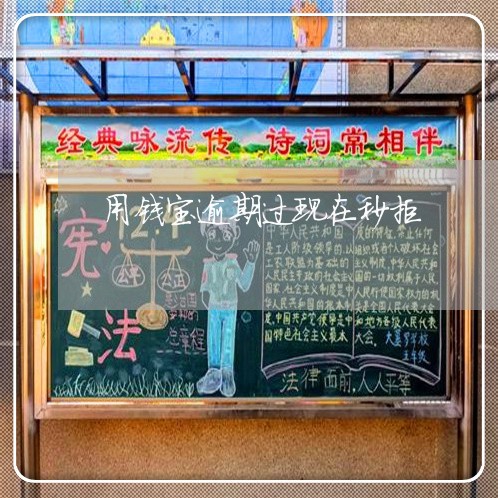 经典咏流传 诗词常相伴
用钱宝逾期过现在秒拒
宪
法
12.4
公平
公正
总章程
中华人民共和国
是工人阶级领导的、以
工农联盟为基础的
人民民主专政的社会主义
国家。社会主义制度是中
华人民共和国的根本制
度。中国共产党领导是中
国特色社会主义最本
质的特征。禁止任何
组织或者个人破坏社会
主义制度。中华人民共和
国的一切权利属于人民。
人民行使国家权力的机
关是全国人民代表大会
和地方各级人民代表
大会。
五年级
法律面前,人人平等